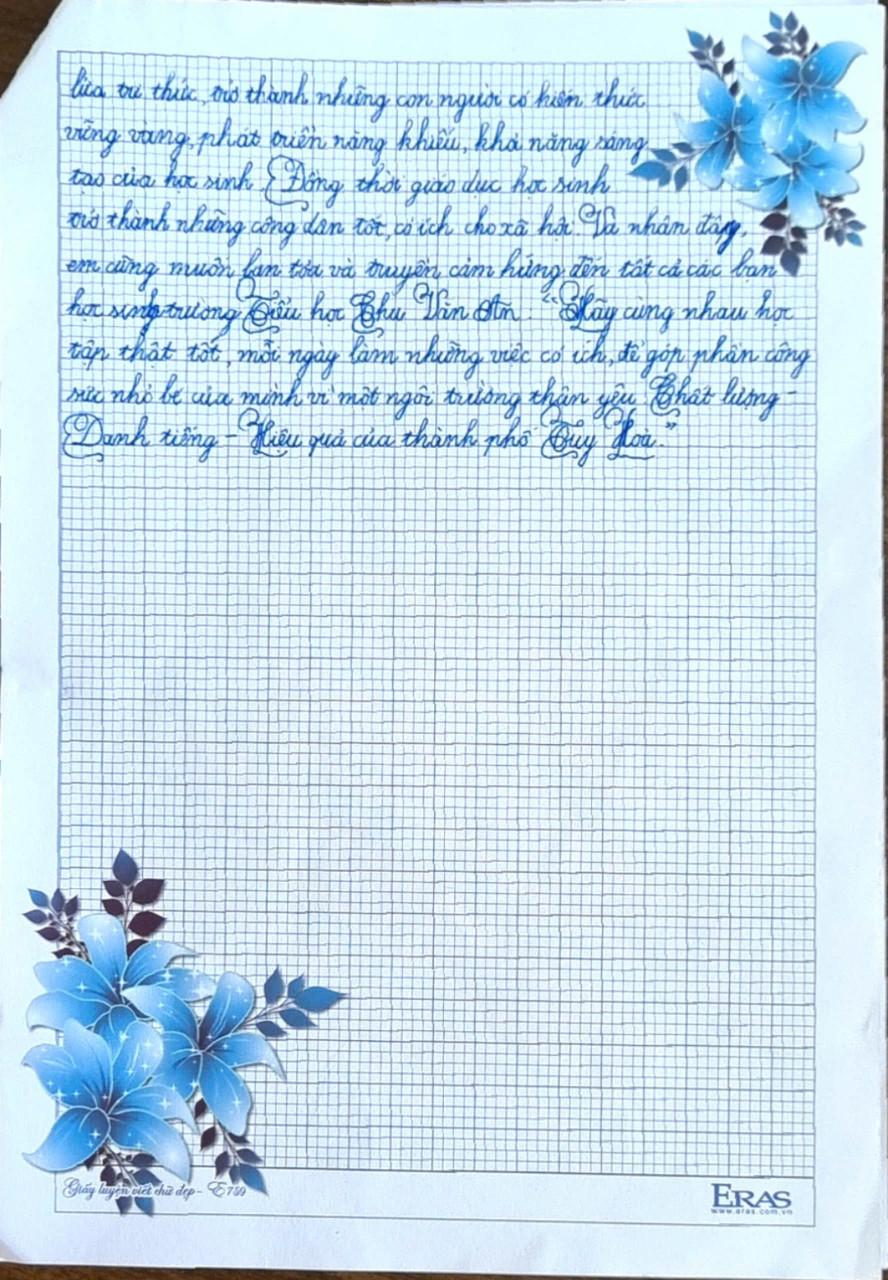 lửa tri thức, trở thành những con người có kiến thức
vững vàng, phát triển năng khiếu, khả năng sáng
tạo của học sinh. Đồng thời giáo dục học sinh
trở thành những công dân tốt, có ích cho xã hội. Và nhân đây,
em cũng muốn lan tỏa và truyền cảm hứng đến tất cả các bạn
học sinh trường Tiểu học Chu Văn An: “Hãy cùng nhau học
tập thật tốt, mỗi ngày làm những việc có ích, để góp phần công
sức nhỏ bé của mình vì một ngôi trường thân yêu Chất lượng -
Danh tiếng - Hiệu quả của thành phố Tuy Hoà.”
Giấy luyện viết chữ đẹp - E759
ERAS
www.eras.com.vn